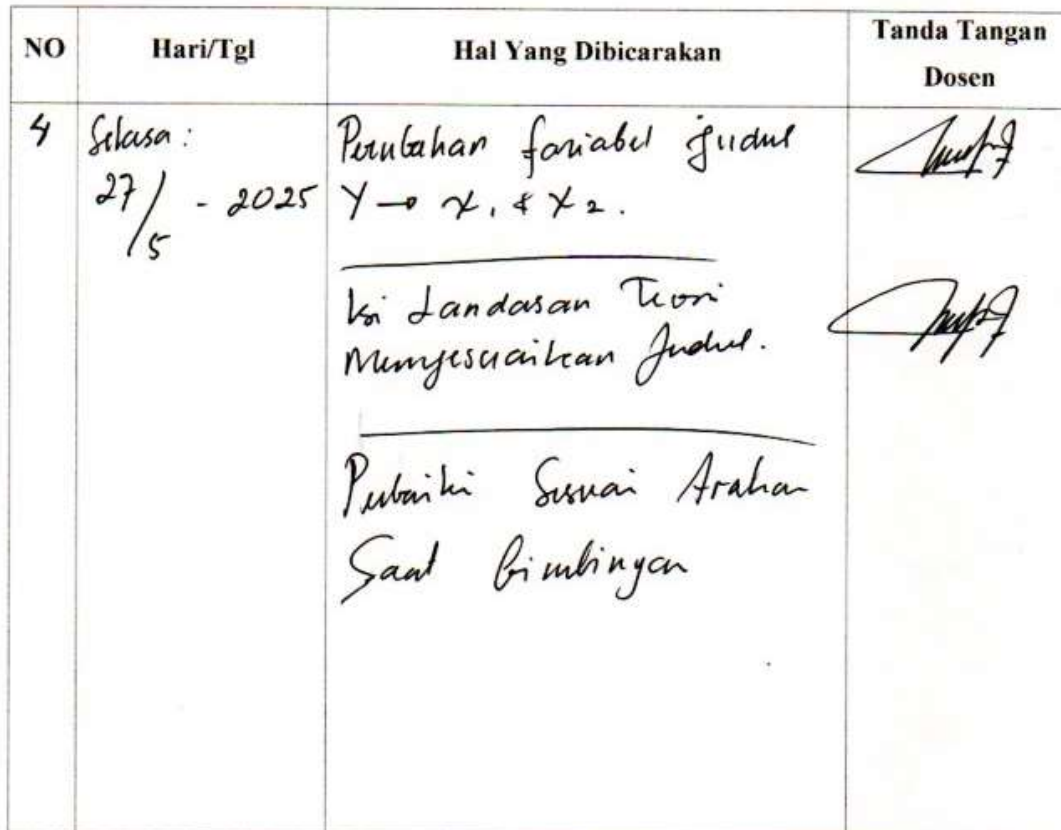 NO Hari/Tgl Hal Yang Dibicarakan Tanda Tangan Dosen
4 Selasa : Perubahan fariabel Judul
27/5 - 2025 Y → X1 & X2.
Isi Landasan Teori
Menyesuaikan Judul.
Perbaiki Sesuai Arahan
Saat Bimbingan